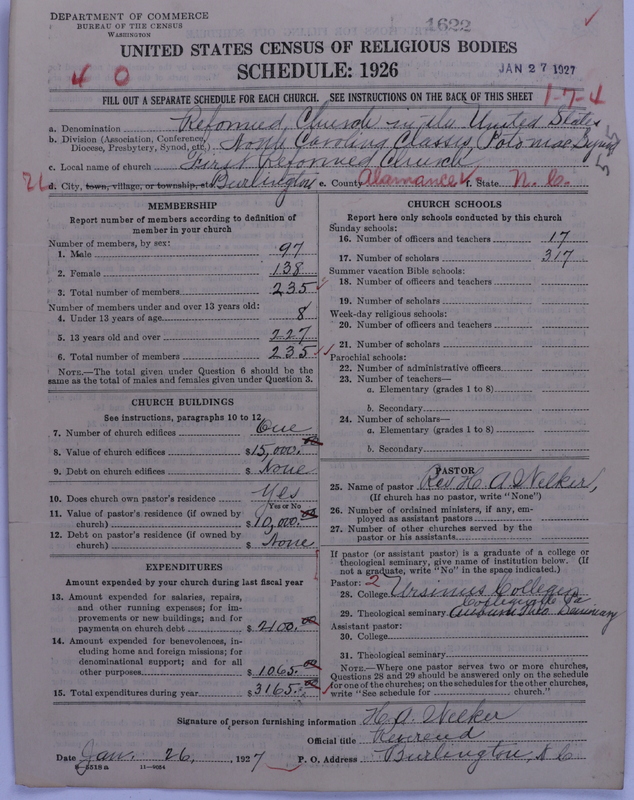 DEPARTMENT OF COMMERCE
BUREAU OF THE CENSUS
WASHINGTON
1622
UNITED STATES CENSUS OF RELIGIOUS BODIES
SCHEDULE: 1926
JAN 27 1927
4 0
FILL OUT A SEPARATE SCHEDULE FOR EACH CHURCH. SEE INSTRUCTIONS ON THE BACK OF THIS SHEET
1-7-4
a. Denomination Reformed Church in the United States
b. Division (Association, Conference, Diocese, Presbytery, Synod, etc.) North Carolina Classis, Potomac Synod
c. Local name of church First Reformed Church
d. City, town, village, or township, etc. Burlington e. County Alamance f. State N. C.
MEMBERSHIP
Report number of members according to definition of member in your church
Number of members, by sex:
1. Male 97
2. Female 138
3. Total number of members 235
Number of members under and over 13 years old:
4. Under 13 years of age 8
5. 13 years old and over 227
6. Total number of members 235
NOTE.—The total given under Question 6 should be the same as the total of males and females given under Question 3.
CHURCH BUILDINGS
See instructions, paragraphs 10 to 12
7. Number of church edifices One
8. Value of church edifices $15,000.
9. Debt on church edifices $ None
10. Does church own pastor's residence Yes
Yes or No
11. Value of pastor's residence (if owned by church) $10,000.
12. Debt on pastor's residence (if owned by church) $ None
EXPENDITURES
Amount expended by your church during last fiscal year
13. Amount expended for salaries, repairs, and other running expenses; for improvements or new buildings; and for payments on church debt $2100.00
14. Amount expended for benevolences, including home and foreign missions; for denominational support; and for all other purposes $1065.00
15. Total expenditures during year $3165.00
CHURCH SCHOOLS
Report here only schools conducted by this church
Sunday schools:
16. Number of officers and teachers 17
17. Number of scholars 317
Summer vacation Bible schools:
18. Number of officers and teachers
19. Number of scholars
Week-day religious schools:
20. Number of officers and teachers
21. Number of scholars
Parochial schools:
22. Number of administrative officers
23. Number of teachers—
a. Elementary (grades 1 to 8)
b. Secondary
24. Number of scholars—
a. Elementary (grades 1 to 8)
b. Secondary
PASTOR
25. Name of pastor Rev. H. A. Welker,
(If church has no pastor, write "None")
26. Number of ordained ministers, if any, employed as assistant pastors
27. Number of other churches served by the pastor or his assistants
If pastor (or assistant pastor) is a graduate of a college or theological seminary, give name of institution below. (If not a graduate, write "No" in the space indicated.)
Pastor: 2
28. College Ursinus College
Collegeville Pa
29. Theological seminary Auburn Theo. Seminary
Assistant pastor:
30. College
31. Theological seminary
NOTE.—Where one pastor serves two or more churches, Questions 28 and 29 should be answered only on the schedule for one of the churches; on the schedules for the other churches, write "See schedule for church."
Signature of person furnishing information H. A. Welker
Official title Reverend
Date Jan. 26, 1927 P. O. Address Burlington, N C
8-5518a 11-9034